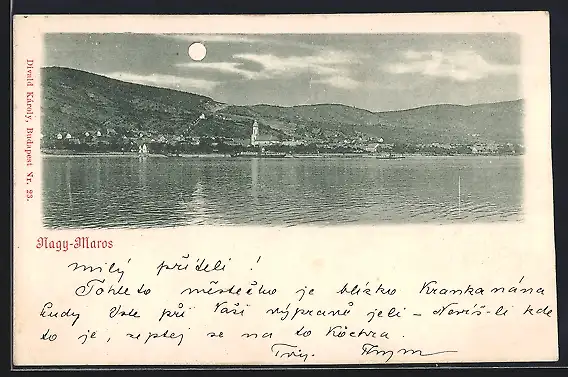 Divald Károly, Budapest Nr. 23.
Nagy-Maros
milý příteli!
Tohleto městečko je blízko
kudy jste při Vaší výpravě jeli – Nevíš-li kde
to je, zeptej se na to
Tvůj